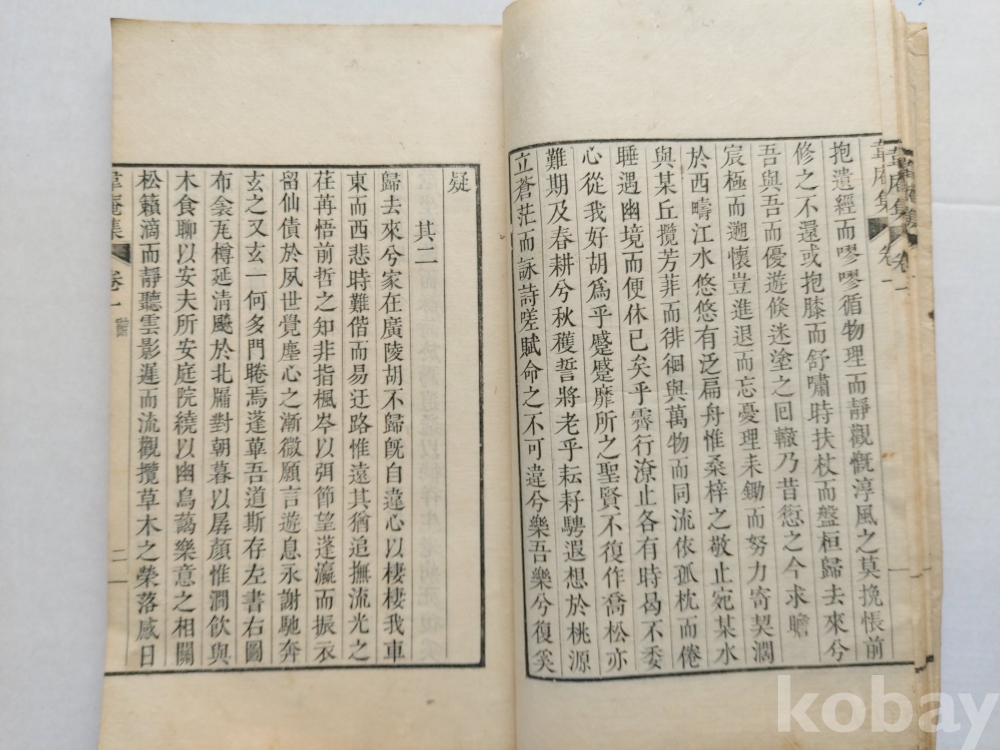 抱遺經而嘐嘐循物理而靜觀慨淳風之莫挽悵前
修之不還或抱膝而舒嘯時扶杖而盤桓歸去來兮
吾與吾而優遊倏迷塗之回轍乃昔愆之今求瞻
宸極而遡懷豈進退而忘憂理耒鋤而努力寄契濶
於西疇江水悠悠有泛扁舟惟桑梓之敬止宛某水
與某丘攬芳菲而徘徊與萬物而同流依孤枕而倦
睡遇幽境而便休已矣乎霽行潦止各有時曷不委
心從我好胡爲乎蹙蹙靡所之聖賢不復作喬松亦
難期及春耕兮秋穫誓將老乎耘耔騁遐想於桃源
立蒼茫而詠詩嗟賦命之不可違兮樂吾樂兮復奚
疑
其二
歸去來兮家在廣陵胡不歸旣自違心以棲棲我車
東而西悲時難偕而易迂路惟遠其猶追撫流光之
荏苒悟前哲之知非指楓岑以弭節望蓬瀛而振衣
留仙債於夙世覺塵心之漸微願言遊息永謝馳奔
玄之又玄一何多門睠焉蓬蓽吾道斯存左書右圖
布衾瓦樽延清飇於北牖對朝暮以孱顏惟澗飮與
木食聊以安夫所安庭院繞以幽鳥藹樂意之相關
松籟滴而靜聽雲影遲而流觀攬草木之榮落感日
葦庵集
卷一
二
kobay